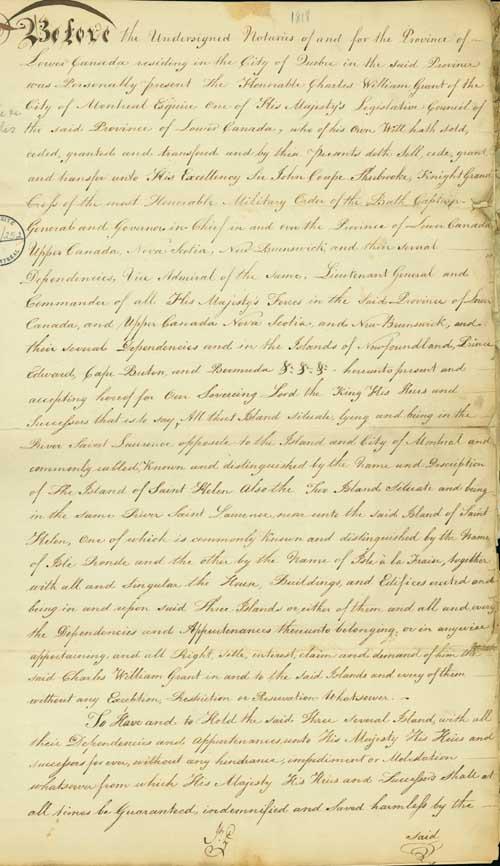 1818
Before the Undersigned Notaries of and for the Province of
Lower Canada residing in the City of Quebec in the said Province
was Personally present The Honorable Charles William Grant of the
City of Montreal Esquire One of His Majesty's Legislative Council of
the said Province of Lower Canada, who of his Own Will hath sold,
ceded, granted and transferred and by these presents doth Sell, cede, grant
and transfer unto His Excellency Sir John Coape Sherbrooke, Knight Grand
Cross of the most Honorable Military Order of the Bath Captain
General and Governor in Chief in and over the Province of Lower Canada
Upper Canada, Nova Scotia, New Brunswick and their several
Dependencies, Vice Admiral of the Same, Lieutenant General and
Commander of all His Majesty's Forces in the said Province of Lower
Canada, and Upper Canada Nova Scotia, and New Brunswick, and
their several Dependencies and in the Islands of Newfoundland, Prince
Edward, Cape Breton, and Bermuda &c &c &c hereunto present and
accepting hereof for Our Sovereing Lord the King His Heirs and
Successors that is to say, All that Island situate, lying and being in the
River Saint Laurence opposite to the Island and City of Montreal and
commonly called, Known and distinguished by the Name and Description
of The Island of Saint Helen Also the Two Island Situate and being
in the same River Saint Laurence, near unto the said Island of Saint
Helen, One of which is commonly known and distinguished by the Name
of Isle Ronde and the other by the Name of Isle à la Fraise, together
with all and Singular the Houses, Buildings, and Edifices erected and
being in and upon said Three Islands or either of them and all and every
the Dependencies and Appurtenances thereunto belonging, or in anywise
appertaining, and all Right, title, interest, claim and demand of him the
said Charles William Grant in and to the said Islands and every of them
without any Exception, Restriction or Reservation Whatsoever.
To Have and to Hold the said Three several Island, with all
their Dependencies and appurtenances, unto His Majesty His Heirs and
successors for ever, without any hindrance, impediment or Molestation
whatsoever from which His Majesty His Heirs and Successors Shall at
all times be Guaranteed, indemnified and Saved harmless by the
said